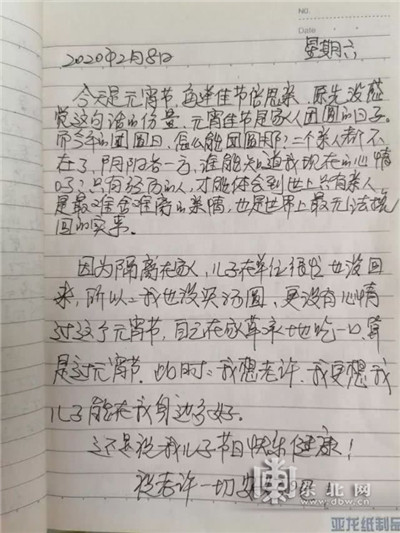 NO.
Date
2020年2月8日 星期六
今天是元宵节,每逢佳节倍思亲,原先没感
觉这句话的份量,元宵佳节是家人团圆的日子。
而今年的团圆日,怎么能团圆那?二个亲人都不
在了,阴阳各一方,谁能知道我现在的心情
吗?只有经历的人,才能体会到世上只有亲人
是最难舍难离的亲情,也是世界上最无法挽
回的实事。
因为隔离在家,儿子在单位很忙也没回
来,所以我也没买汤圆,更没有心情
过这个元宵节,自己在家草率地吃一口,算
是过元宵节,此时我想老许,我更想我
儿子能在我身边多好。
还是祝我儿子节日快乐健康!
祝老许一切安
东北网
www.dbw.cn
亚龙纸制品